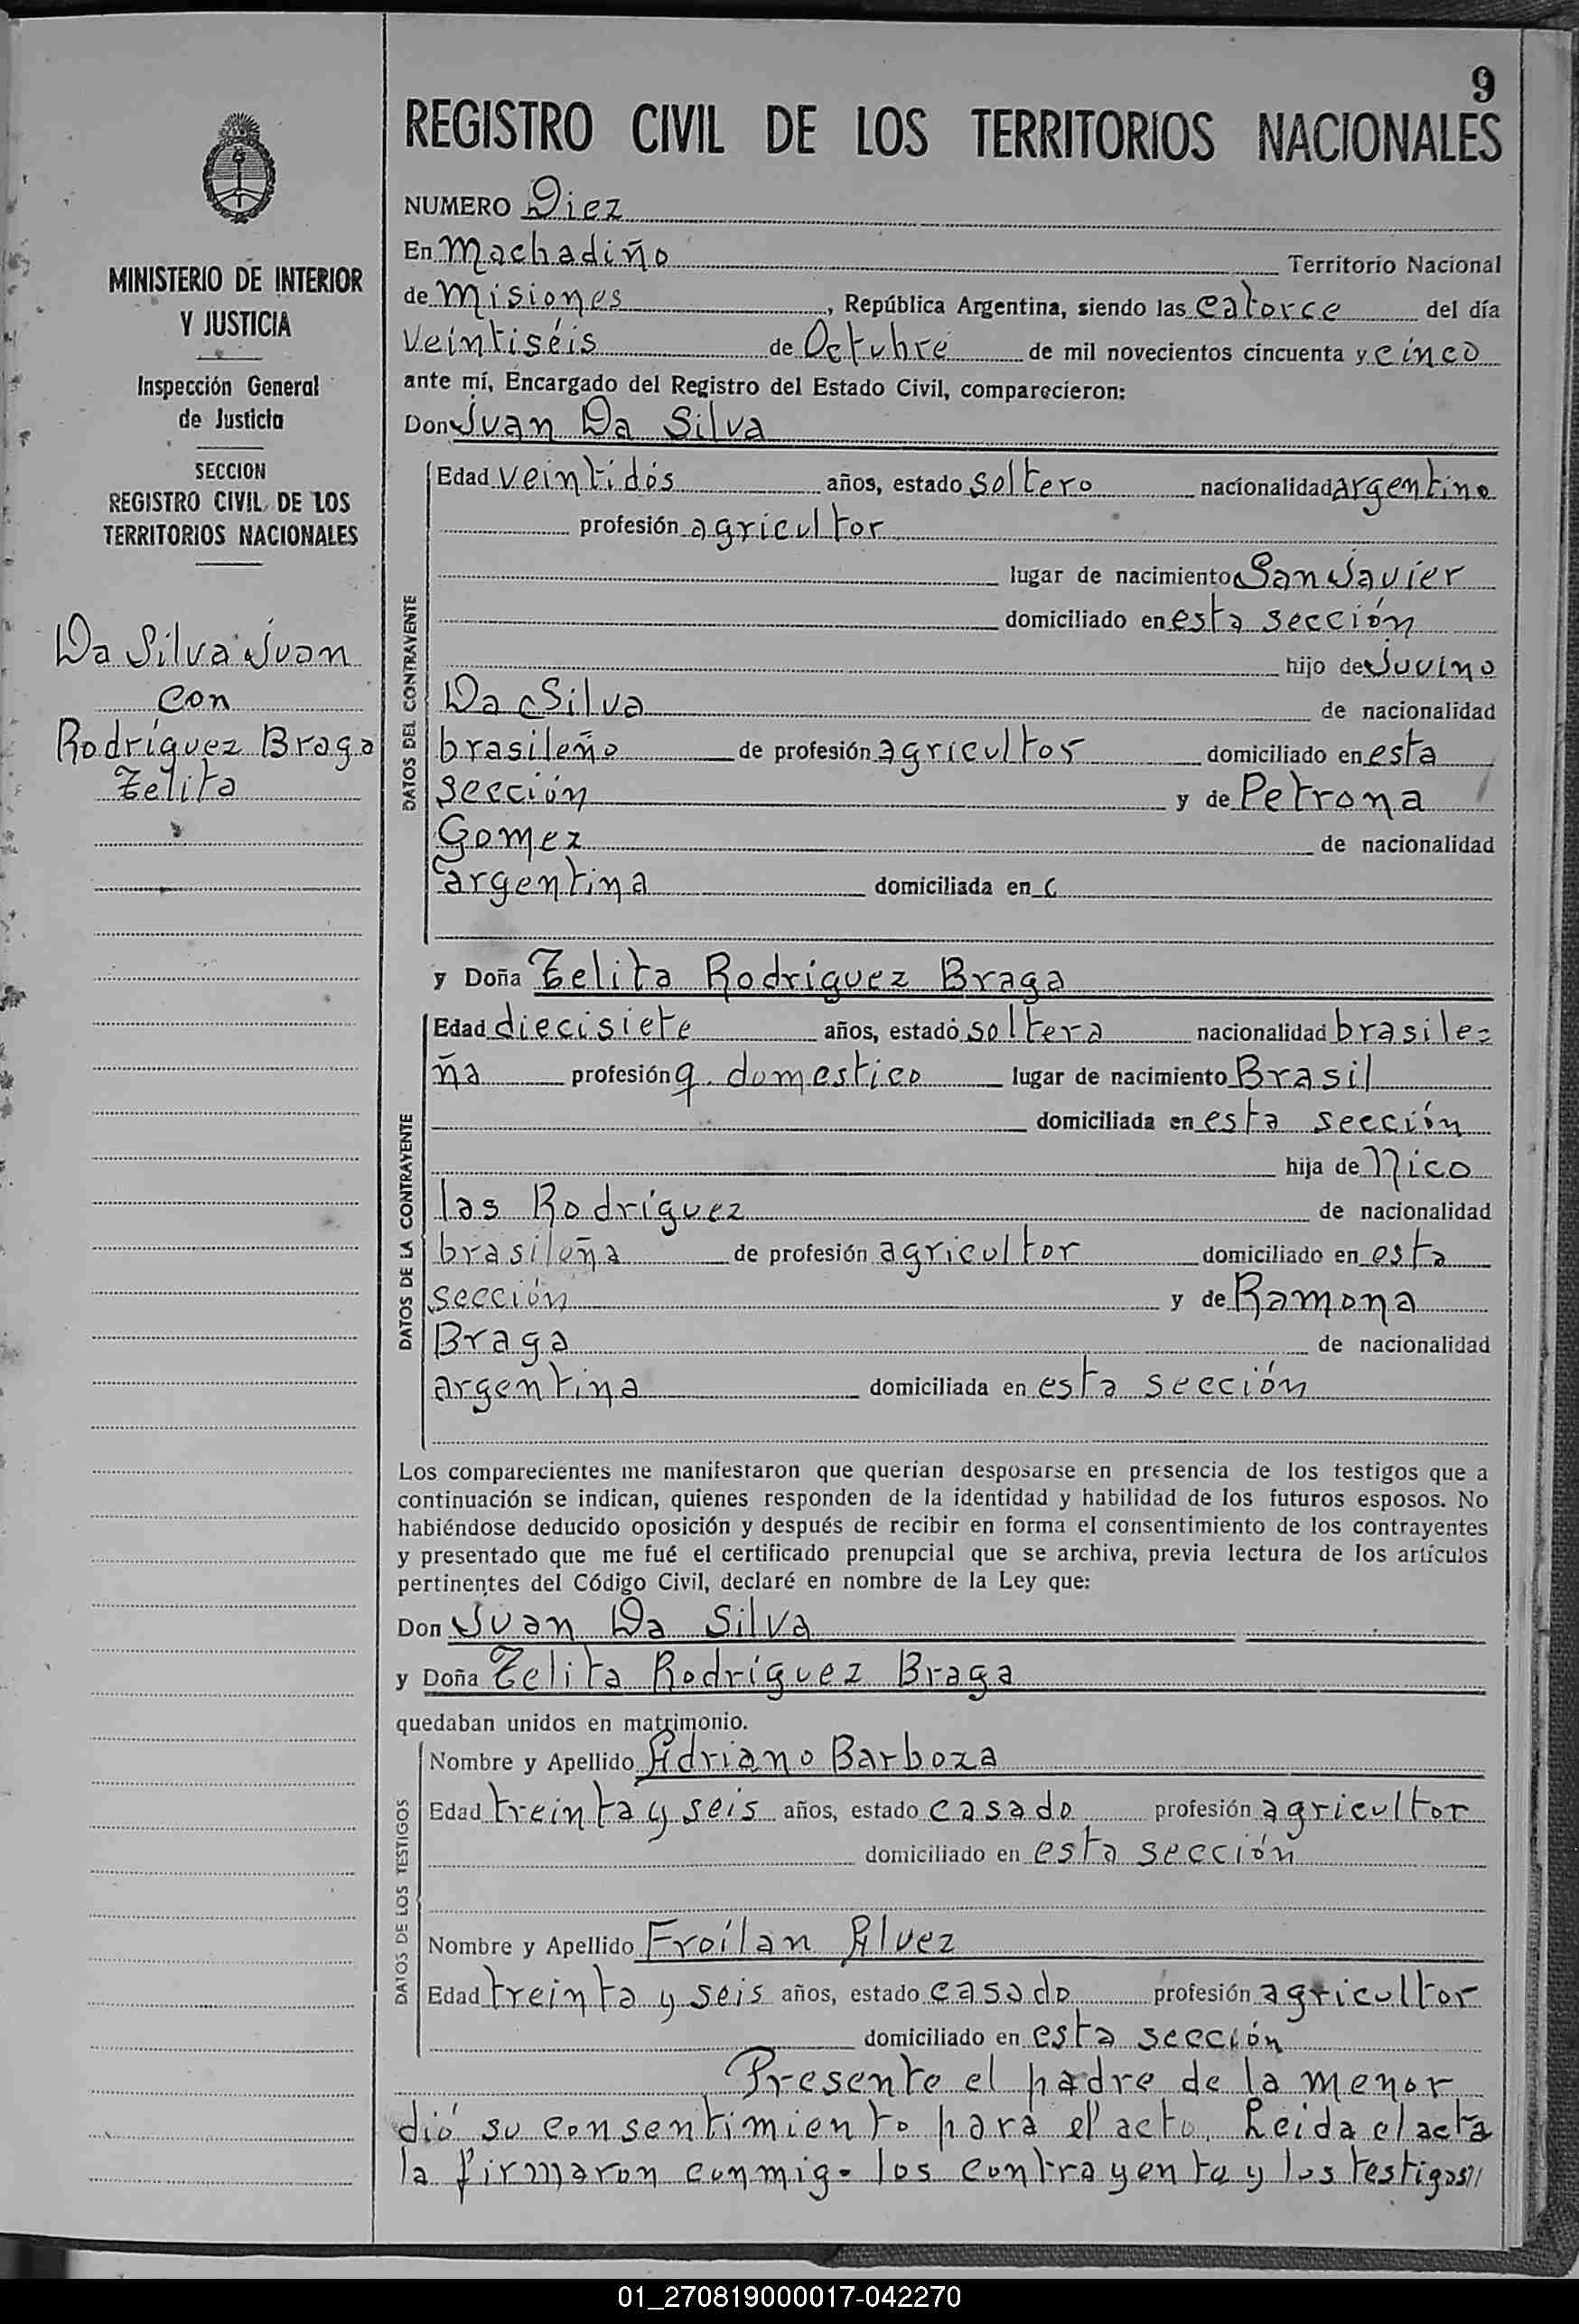 9
REGISTRO CIVIL DE LOS TERRITORIOS NACIONALES
MINISTERIO DE INTERIOR
Y JUSTICIA
Inspección General
de Justicia
SECCION
REGISTRO CIVIL DE LOS
TERRITORIOS NACIONALES
Da Silva Juan
con
Rodríguez Braga
Zelita
NUMERO Diez
En Machadiño Territorio Nacional
de Misiones, República Argentina, siendo las catorce del día
veintiséis de Octubre de mil novecientos cincuenta y cinco
ante mí, Encargado del Registro del Estado Civil, comparecieron:
Don Juan Da Silva
DATOS DEL CONTRAYENTE
Edad veintidós años, estado soltero nacionalidad argentino
profesión agricultor
lugar de nacimiento San Javier
domiciliado en esta sección
hijo de Juvino
Da Silva de nacionalidad
brasileño de profesión agricultor domiciliado en esta
sección y de Petrona
Gomez de nacionalidad
argentina domiciliada en
y Doña Zelita Rodriguez Braga
DATOS DE LA CONTRAYENTE
Edad diecisiete años, estado soltera nacionalidad brasile=
ña profesión q. domestico lugar de nacimiento Brasil
domiciliada en esta sección
hija de Nico
las Rodríguez de nacionalidad
brasileña de profesión agricultor domiciliado en esta
sección y de Ramona
Braga de nacionalidad
argentina domiciliada en esta sección
Los comparecientes me manifestaron que querían desposarse en presencia de los testigos que a
continuación se indican, quienes responden de la identidad y habilidad de los futuros esposos. No
habiéndose deducido oposición y después de recibir en forma el consentimiento de los contrayentes
y presentado que me fué el certificado prenupcial que se archiva, previa lectura de los artículos
pertinentes del Código Civil, declaré en nombre de la Ley que:
Don Juan Da Silva
y Doña Zelita Rodríguez Braga
quedaban unidos en matrimonio.
DATOS DE LOS TESTIGOS
Nombre y Apellido Adriano Barboza
Edad treinta y seis años, estado casado profesión agricultor
domiciliado en esta sección
Nombre y Apellido Froílan Alvez
Edad treinta y seis años, estado casado profesión agricultor
domiciliado en esta sección
Presente el padre de la menor
dió su consentimiento para el acto. Leida el acta
la firmaron conmigo los contrayente y los testigos//
01_270819000017-042270